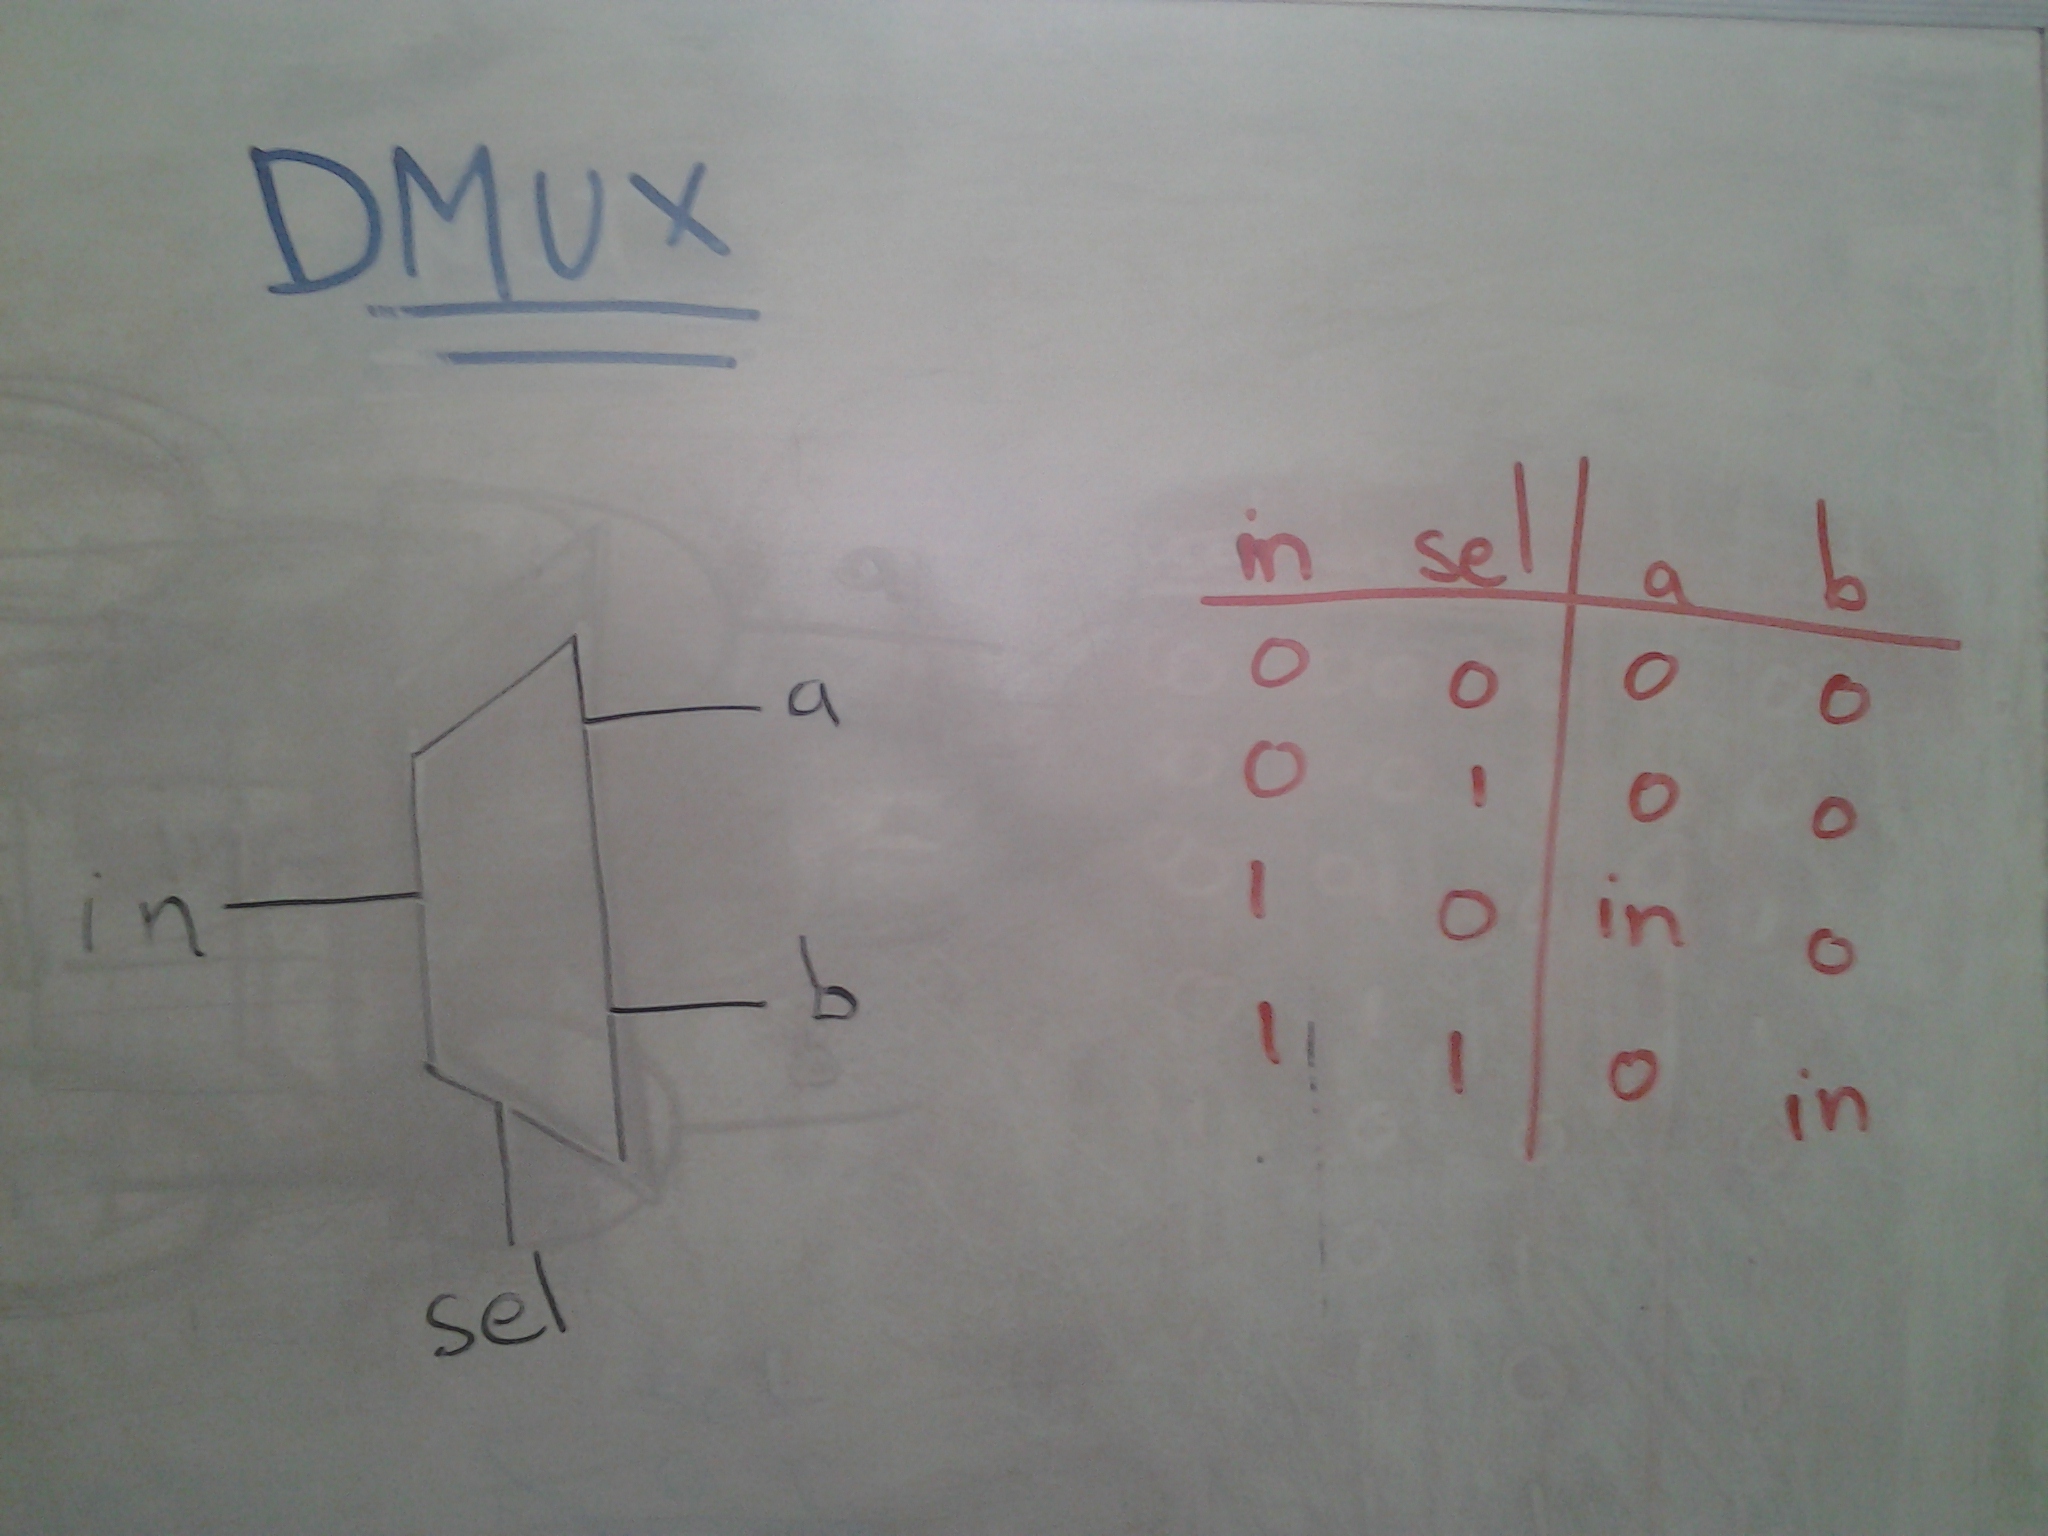 DMUX
a
in
b
sel
in sel a b
0 0 0 0
0 1 0 0
1 0 in 0
1 1 0 in